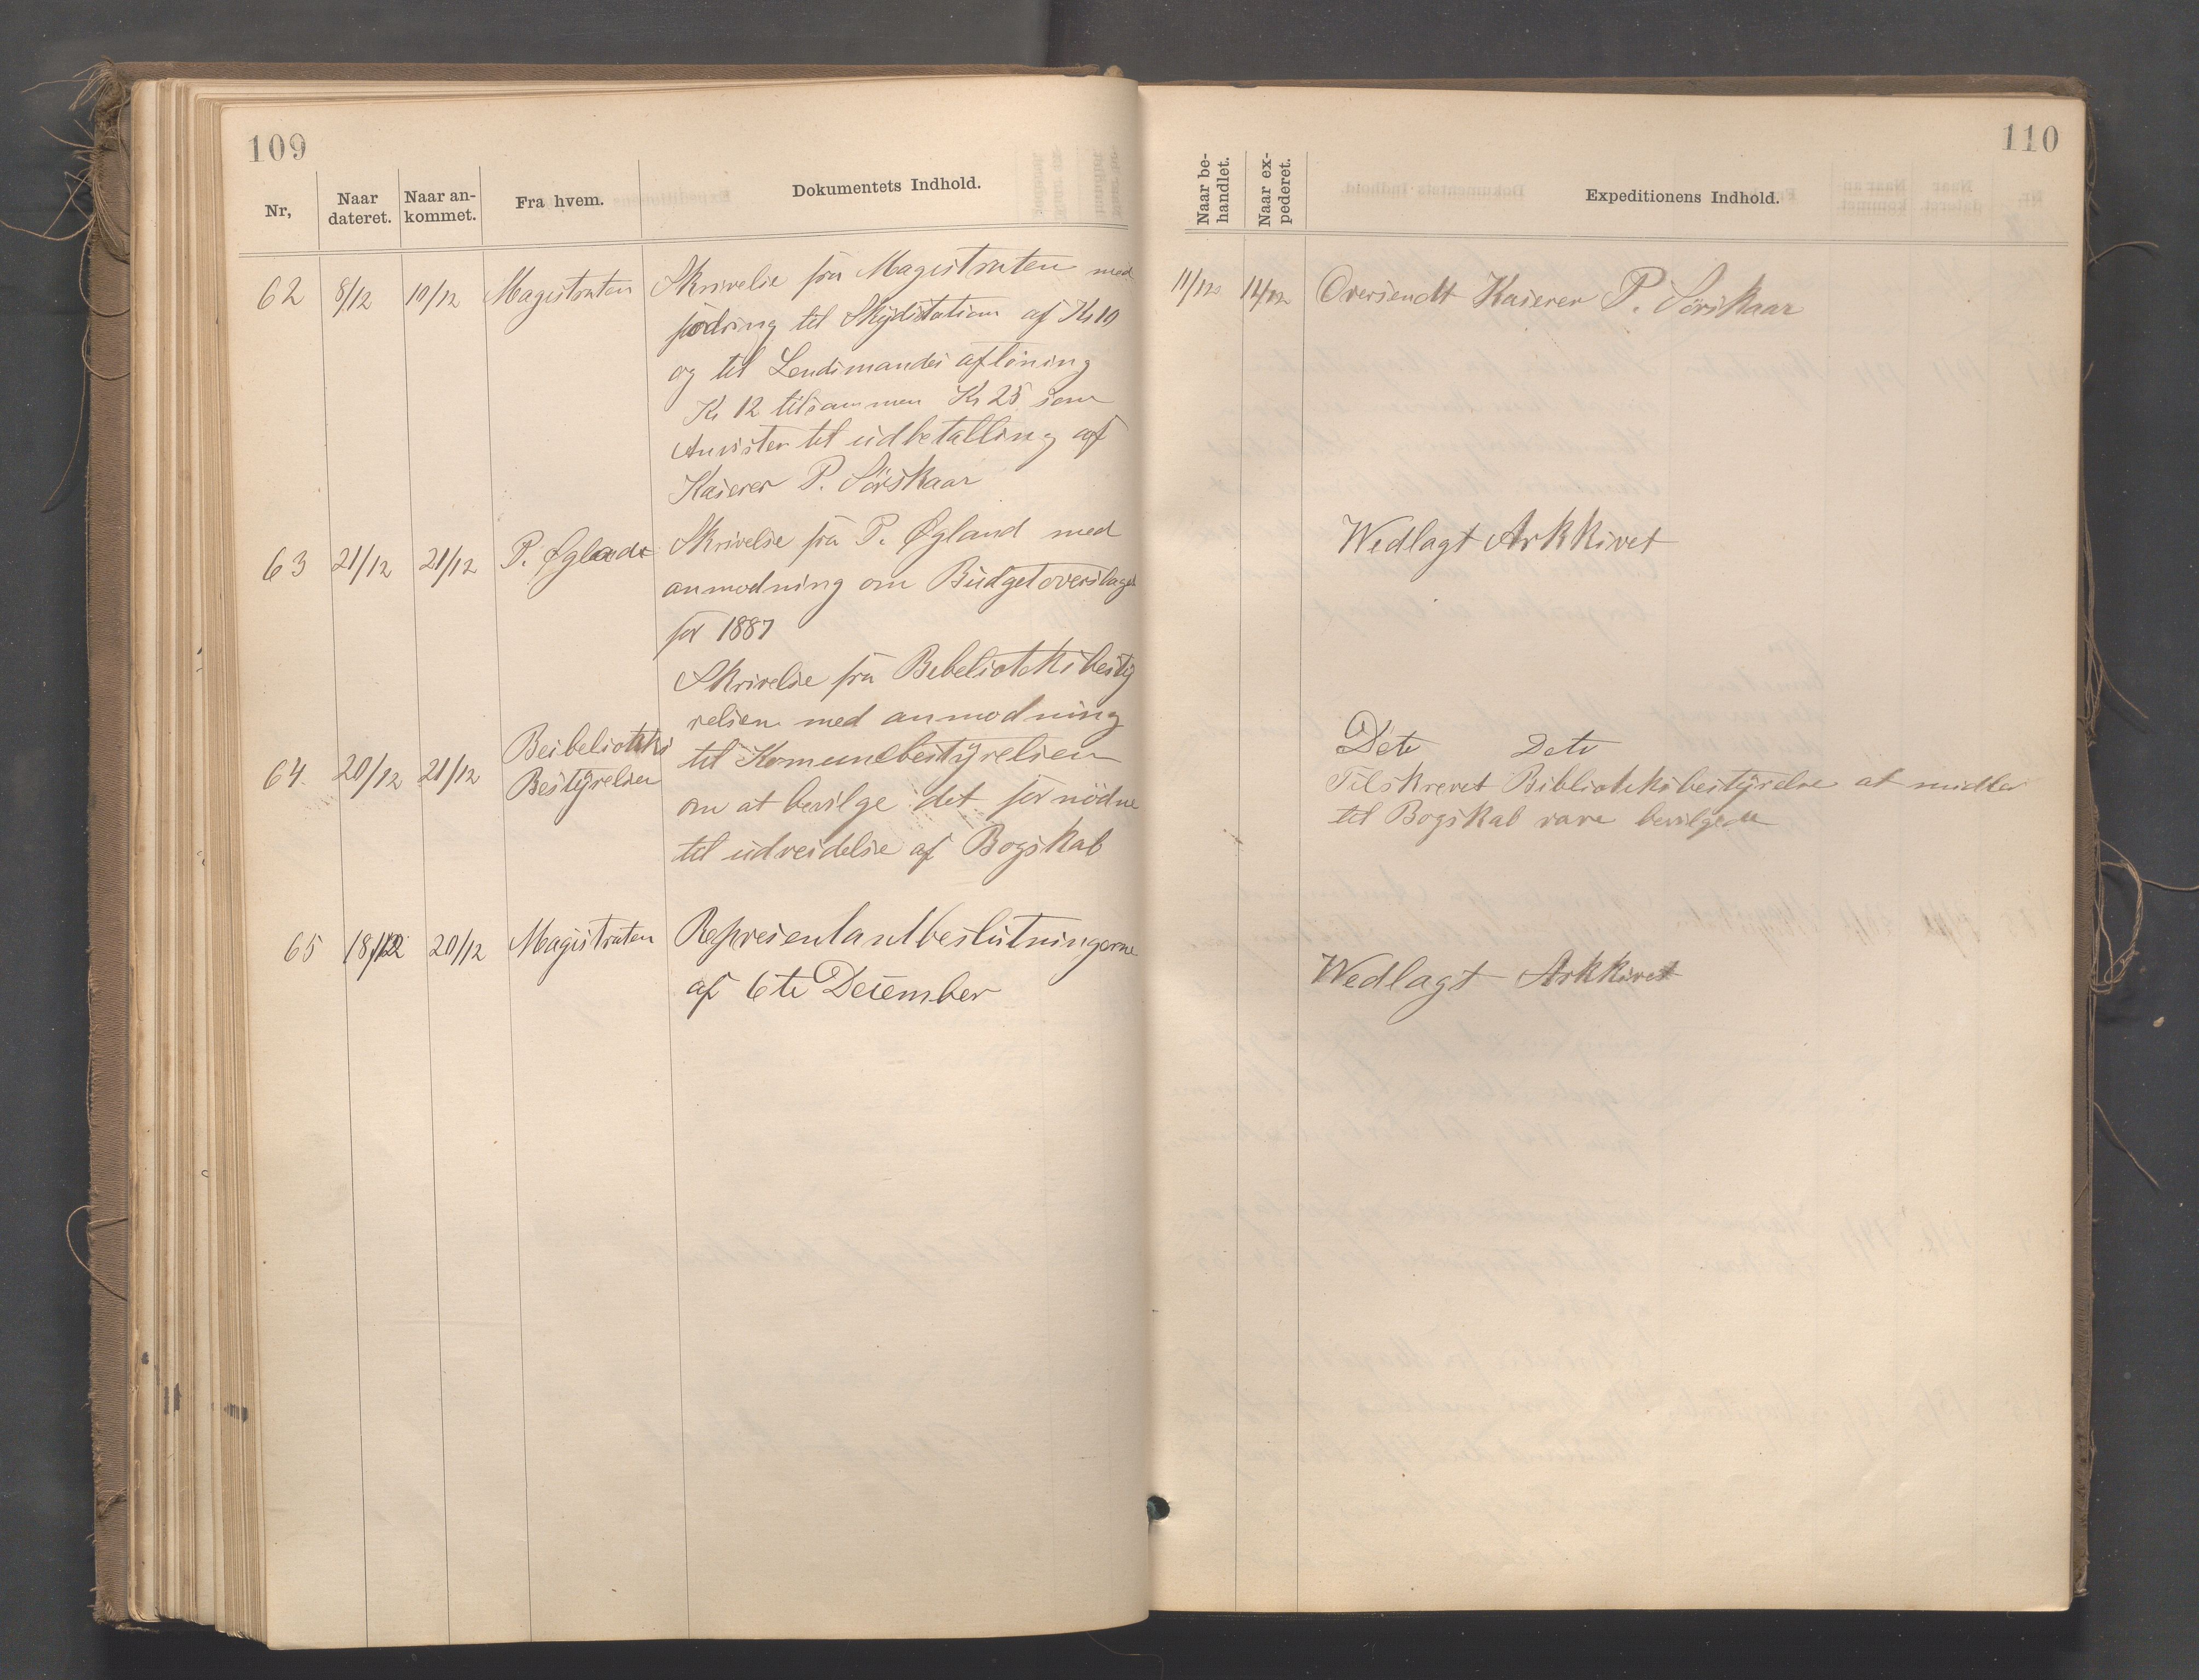 109
Nr,
Naar dateret.
Naar an-kommet.
Fra hvem.
Dokumentets Indhold.
62 8/12 10/12 Magistraten Skrivelse fra Magistraten med
fordring til Skydsstation af Kr
og til Lendsmandes aflöning
Kr 12 tilsammen Kr 25 som
Anvistes til udbetalling af
Kaserer P. Sörskaar
63 21/12 21/12 P. Øglande Skrivelse fra P. Øgland med
anmodning om Budgetoverslaget
for 1887
Skrivelse fra Bebeliotheksbesty
relsen med anmodning
64 20/12 21/12 Beibeliotheks
Bestyrelsen
til Komunebestyrelsen
om at bevilge det fornödne
til udreidelse af Bogskab
65 18/12 20/12 Magistraten Represientantbeslutningerne
af 6te December
110
Naar be-handlet.
Naar ex-pederet.
Expeditionens Indhold.
11/12 14/12 Oversendt Kaserer P. Sörskaar
Wedlagt Arkkivet
Deto Deto
Tilskrevet Bibliotheksbestyrelse at midler
til Bogskab vare bevilgede
Wedlagt Arkkivet